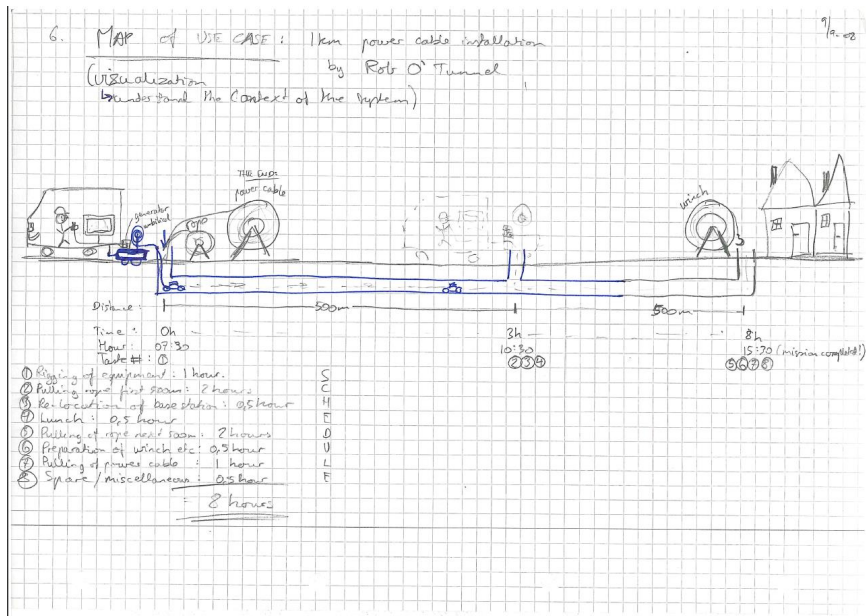 9/9-08
6. MAP of USE CASE: 1km power cable installation
by Rob O'Tunnel
(visualization
↳ understand the context of the system)
THE END:
power cable
generator
umbilical
rope
winch
Distance: 500m 500m
Time: 0h 3h 8h
Hour: 07:30 10:30 15:30 (mission completed!)
Task #: ① ②③④ ⑤⑥⑦⑧
① Rigging of equipment: 1 hour.
② Pulling rope first 500m: 2 hours
③ Re-location of base station: 0,5 hour
④ Lunch: 0,5 hour
⑤ Pulling of rope next 500m: 2 hours
⑥ Preparation of winch etc: 0,5 hour
⑦ Pulling of power cable: 1 hour
⑧ Spare/miscellaneous: 0,5 hour
= 8 hours
S
C
H
E
D
U
L
E